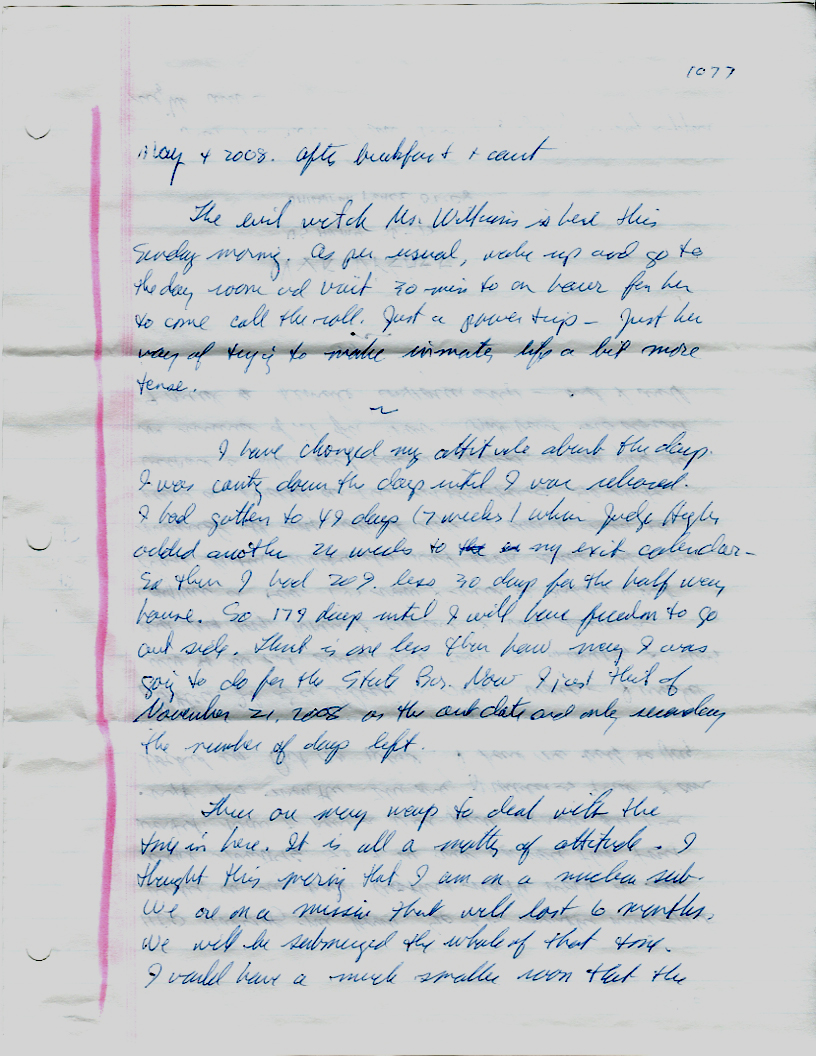 1077
May 4 2008. after breakfast + count
The evil witch Ms. Williams is here this
Sunday morning. As per usual, wake up and go to
the day room and wait 30 min to an hour for her
to come call the roll. Just a power trip - Just her
way of trying to make inmates life a bit more
tense.
~
I have changed my attitude about the days.
I was counting down the days until I was released.
I had gotten to 49 days (7 weeks) when Judge
added another 24 weeks to my exit calendar -
So then I had 209. less 30 days for the half way
house. So 179 days until I will have freedom to go
out side. That is one less than how many I was
going to do for the State Bar. Now I just think of
November 21, 2008 as the out date and only secondary
the number of days left.
There are many ways to deal with the
time in here. It is all a matter of attitude. I
thought this morning that I am on a nuclear sub.
We are on a mission that will last 6 months.
We will be submerged the whole of that time.
I would have a much smaller room that the